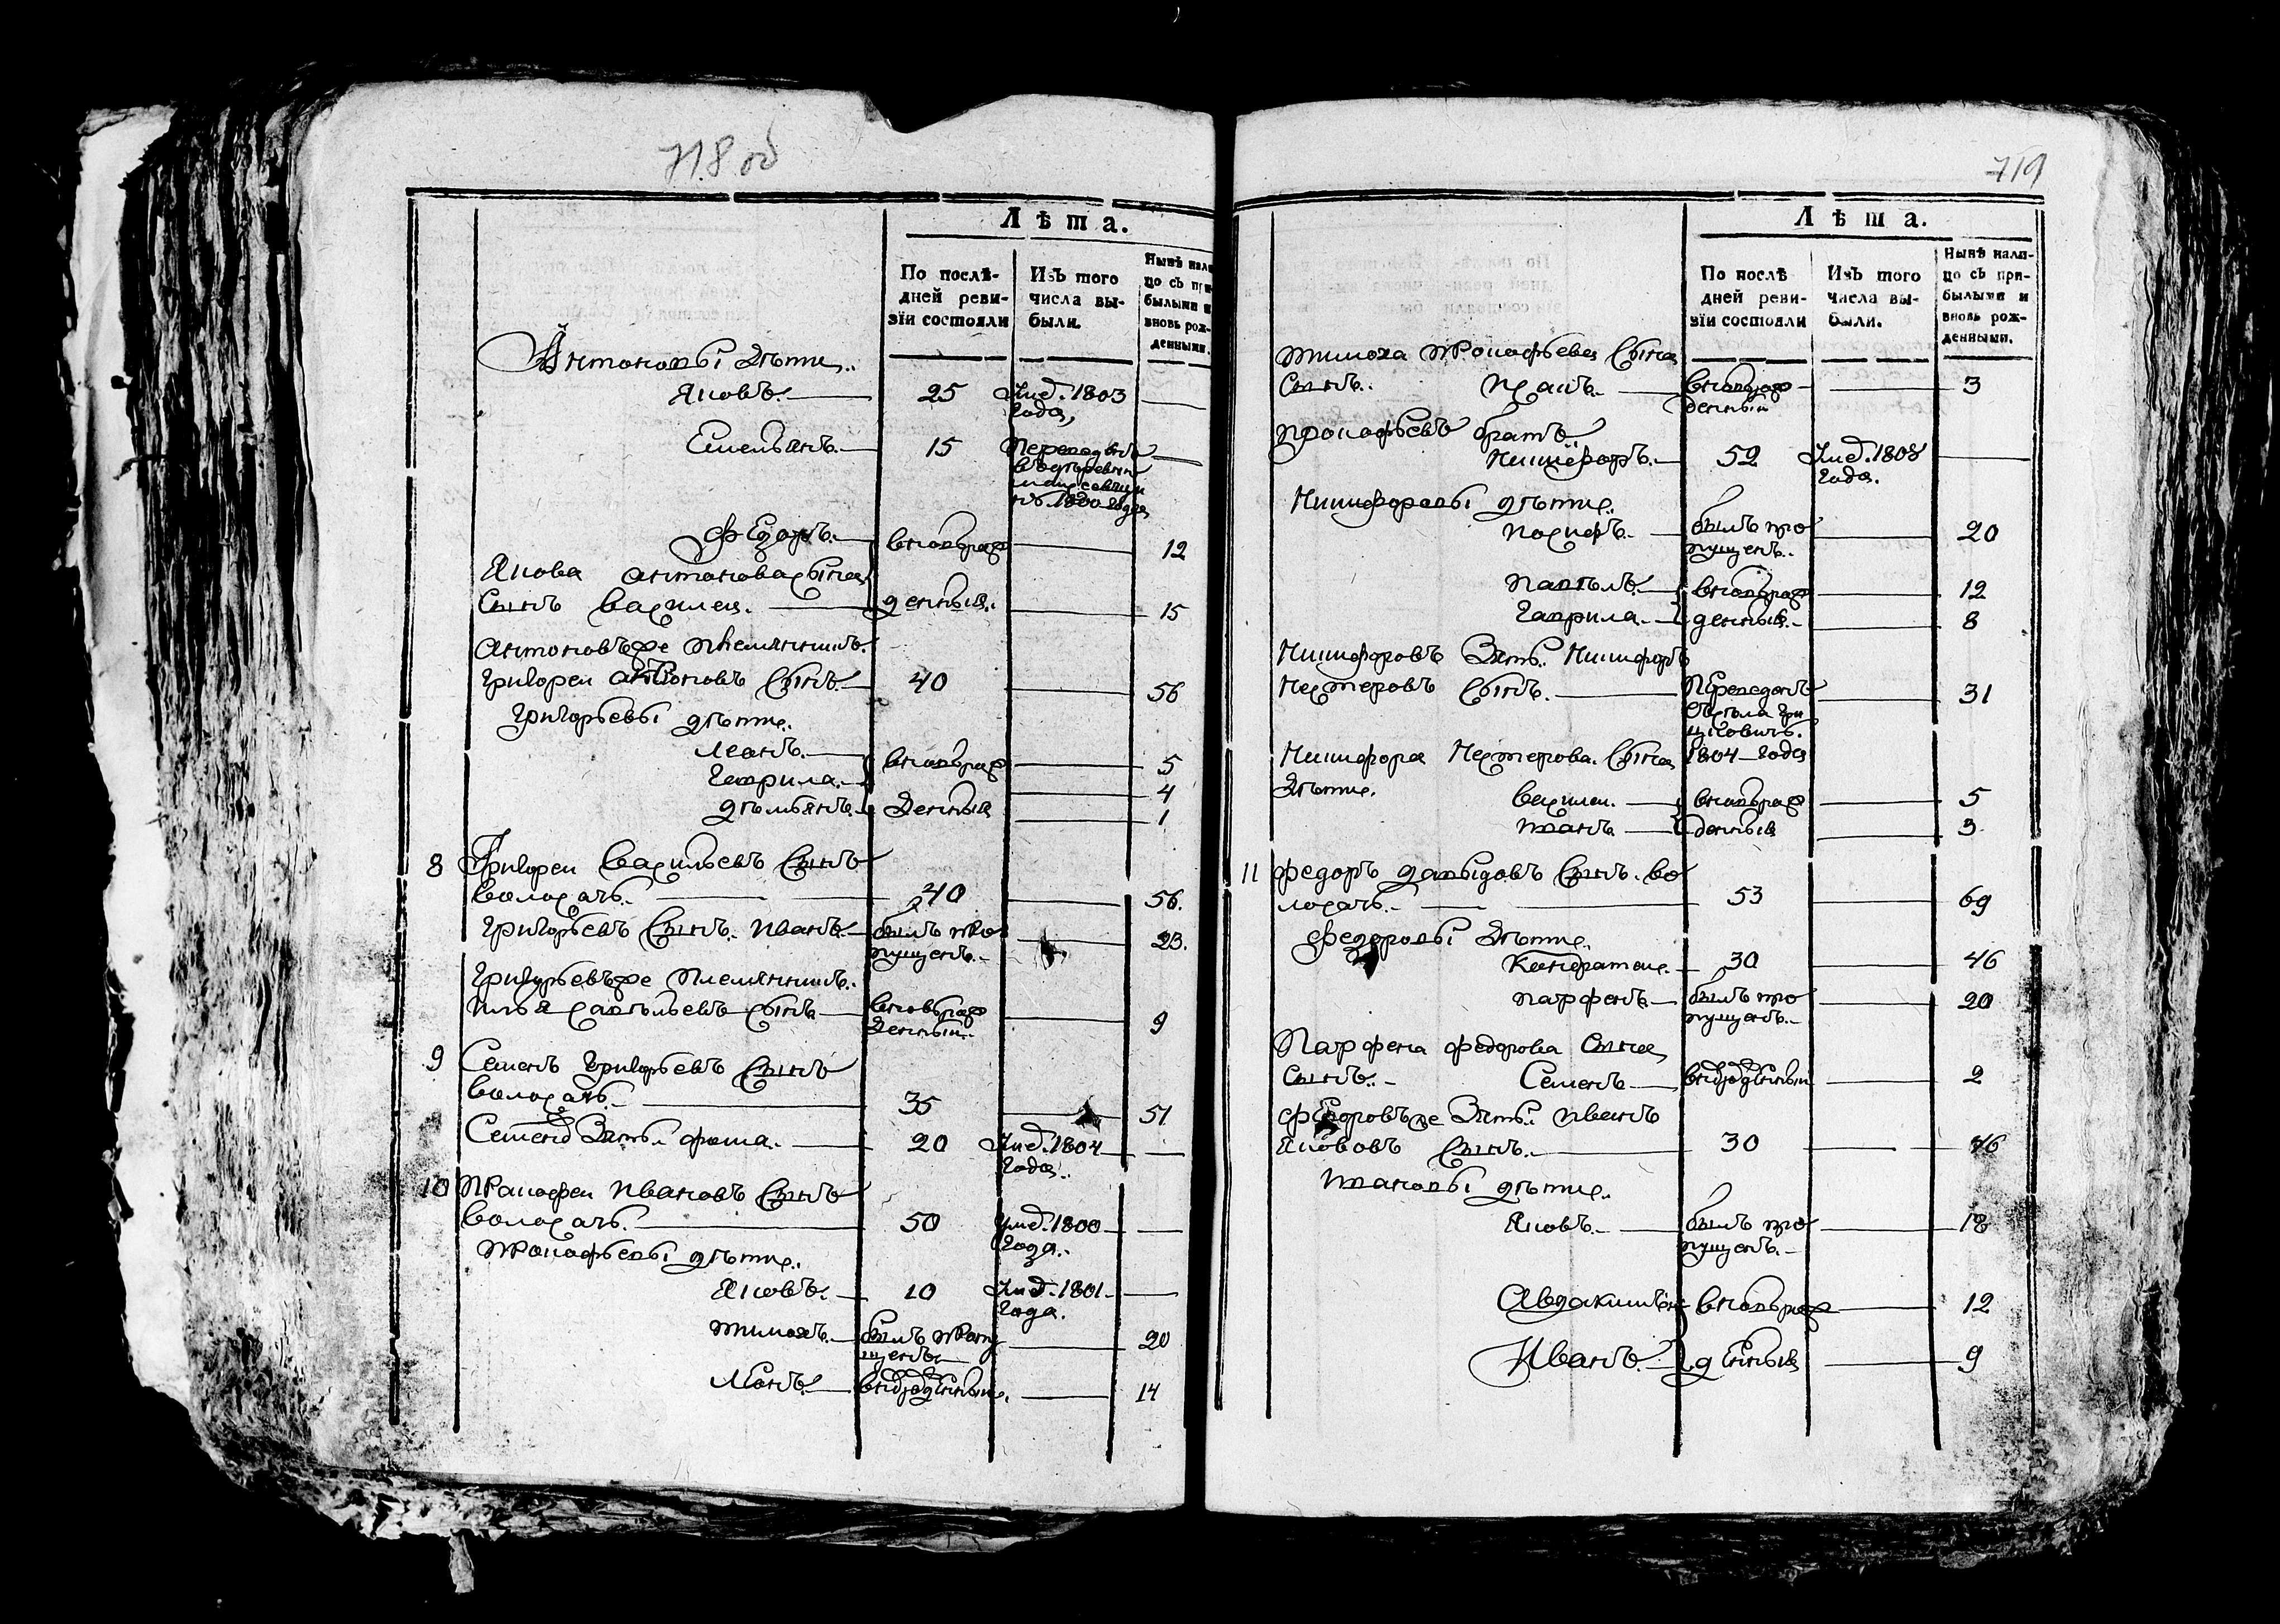 718 об
Лѣта.
По послѣ-
дней реви-
зіи состояли
Изъ того
числа вы-
были.
Нынѣ нали
цо съ при
былыми и
вновь рож-
денными.
Антоновы дѣти.
Яковъ. 25 Умер. 1803
года
Емельянъ. 15 Переведенъ
1800 года
Федоръ. вновьрож 12
Якова Антонова сына
сынъ Василеи. денныя. 15
Антоновъ же племянникъ.
Григореи Антоновъ сынъ. 40 56
Григорьевы дѣти.
Леонъ. вновьрож 5
Гаврила. 4
Демьянъ. денныя 1
8 Григореи Васильевъ сынъ
Волосачъ. 40 56.
Григорьевъ сынъ Иванъ. былъ про 23.
пущенъ.
Григорьевъ же племянникъ.
Илья Савельевъ сынъ вновьрож
денныи. 9
9 Семенъ Григорьевъ сынъ
Волосачъ. 35 51
Семенов зять Фома. 20 Умер. 1804
года.
10 Пракофеи Ивановъ сынъ
Волосачъ. 50 Умер. 1800
года.
Пракофьевы дѣти.
Яковъ. 10 Умер. 1801
года.
Тимохъ. былъ пропу 20
щенъ
Леонъ. вновьрожденныи. 14
719
Лѣта.
По послѣ
дней реви-
зіи состояли
Изъ того
числа вы-
были.
Нынѣ нали-
цо съ при-
былыми и
вновь рож-
денными.
Тимоха Пракофьева сына
сынъ. Исакъ. вновьрож 3
денныи
Прокофьевъ братъ
Никифоръ. 52 Умер. 1808
года.
Никифоровы дѣти.
Иосифъ. былъ про 20
пущенъ.
Павелъ. вновьрож 12
Гаврила. денныя. 8
Никифоровъ зять Никифоръ
Нестеровъ сынъ. Переведенъ 31
Никифора Нестерова сына 1804 года
дѣти. Василеи. вновьрож 5
Иванъ денныя 3
11 Федоръ Давыдовъ сынъ Во
лосачъ. 53 69
Федоровы дѣти.
Кандратеи. 30 46
Парфенъ былъ про 20
пущенъ.
Парфена Федорова сына
сынъ. Семенъ вновьрожденныи 2
Федоровъ же зять Иванъ
Якововъ сынъ. 30 46
Ивановы дѣти.
Яковъ. былъ про 18
пущенъ.
Авдакимъ вновьрож 12
Иванъ. денныя 9